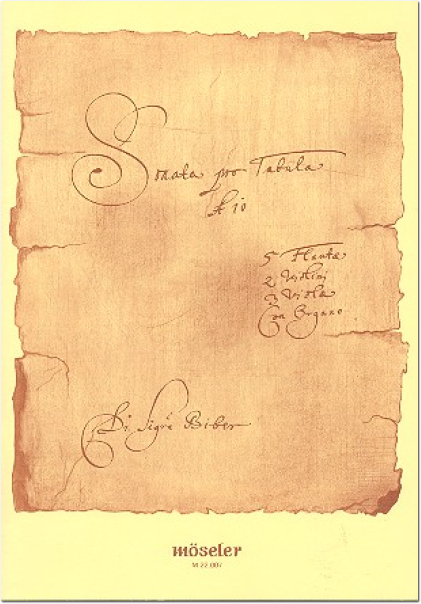 Sonata pro Tabula
A 10
5 Flauta
2 Violini
3 Viola
Con Organo
Di Sigre Biber
möseler
M 22.007